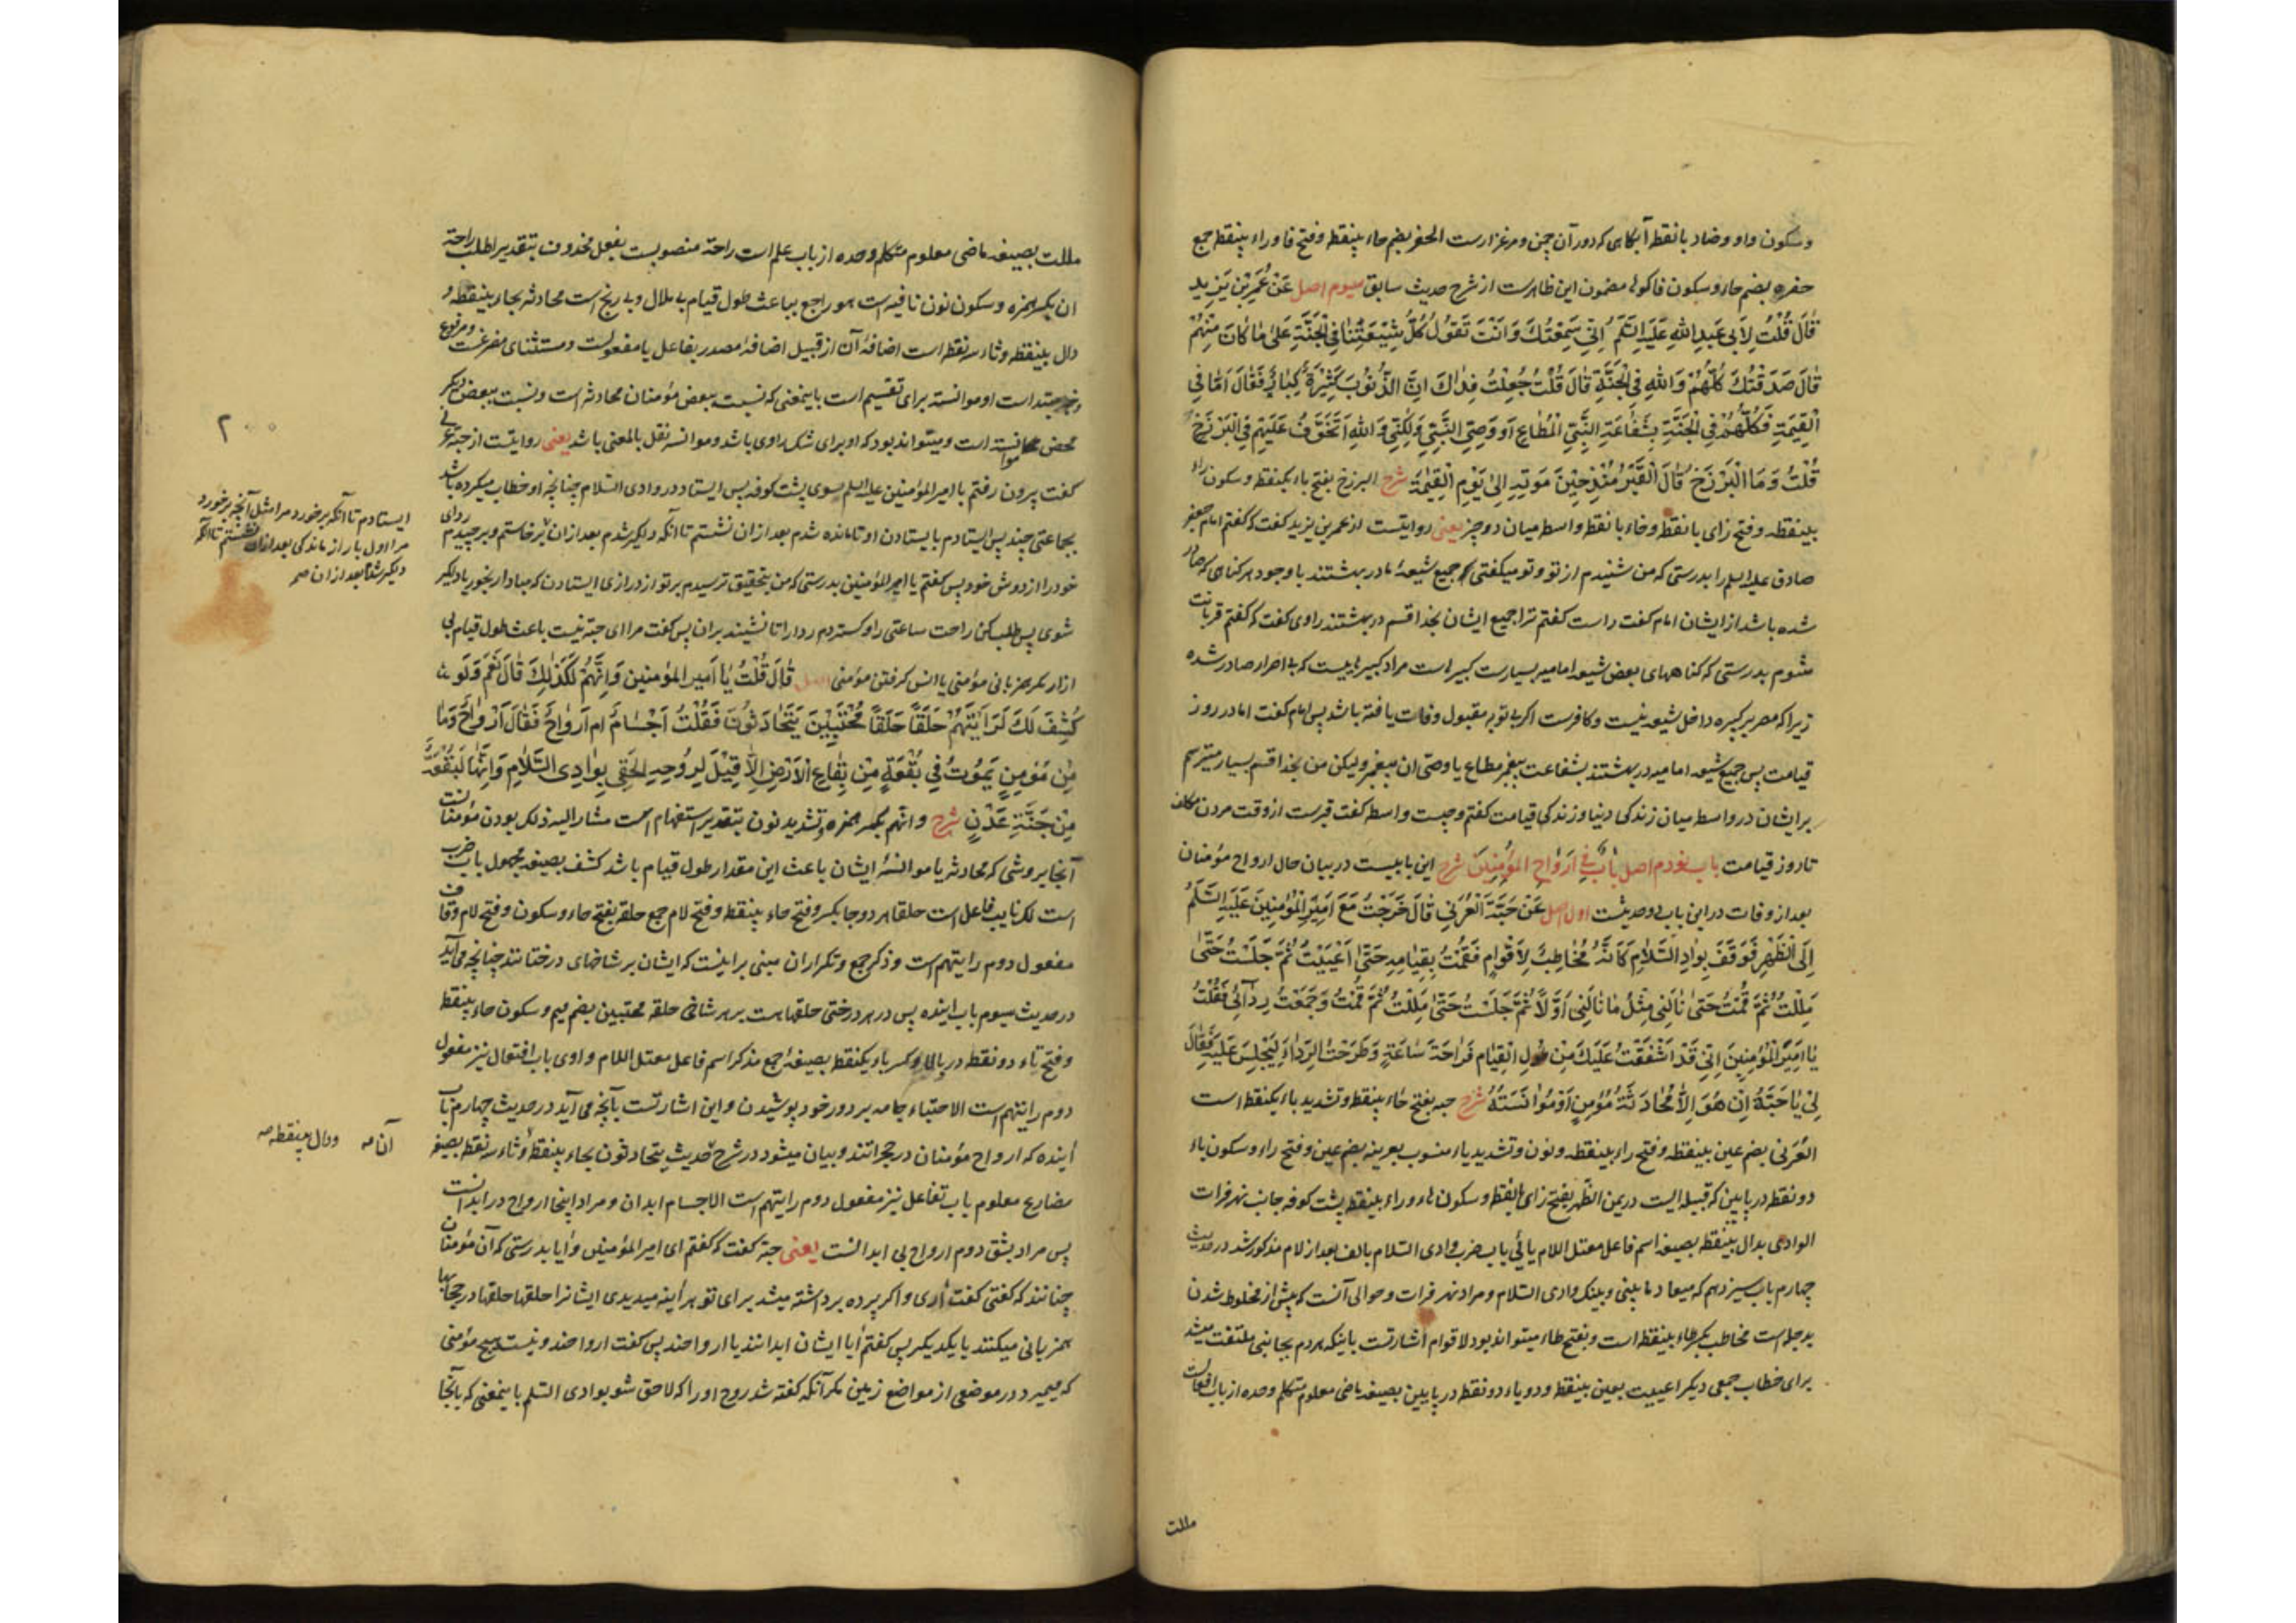 وسکون واو وضاد بانقطه آبکاهی که دور آن چمن ومرغزارست الحفر بضم حاء بینقطه وفتح فا وراء بینقطه جمع
حفره بضم حاء وسکون فا کوله مضمون این ظاهرست از شرح حدیث سابق سیوم اصل عَنْ عُمَرَ بْنِ یَزِیدَ
قَالَ قُلْتُ لِأَبِی عَبْدِ اللّٰهِ عَلَیْهِ السَّلَمُ اِنِّی سَمِعْتُكَ وَاَنْتَ تَقُولُ كُلُّ شِیعَتِنَا فِی الْجَنَّةِ عَلٰی مَا كَانَ مِنْهُمْ
قَالَ صَدَقْتُكَ كُلُّهُمْ وَاللّٰهِ فِی الْجَنَّةِ قَالَ قُلْتُ جُعِلْتُ فِدَاكَ اِنَّ الذُّنُوبَ كَثِیرَةٌ كِبَارٌ فَقَالَ اَمَّا فِی
الْقِیٰمَةِ فَكُلُّهُمْ فِی الْجَنَّةِ بِشَفَاعَةِ النَّبِیِّ الْمُطَاعِ اَوْ وَصِیِّ النَّبِیِّ وَلٰكِنِّی وَاللّٰهِ اَتَخَوَّفُ عَلَیْهِمْ فِی الْبَرْزَخِ
قُلْتُ وَمَا الْبَرْزَخُ قَالَ الْقَبْرُ مُنْذُ حِینَ مَوْتِهِ اِلٰی یَوْمِ الْقِیٰمَةِ شرح البرزخ بفتح باء یکنقطه وسکون راء
بینقطه وفتح زای بانقطه وخاء بانقطه واسطه میان دو چیز یعنی روایتست از عمر بن یزید گفت که گفتم امام جعفر
صادق علیه السلم را بدرستی که من شنیدم از تو وتو میگفتی که جمیع شیعهٔ ما در بهشتند با وجود هر گناهی که صادر
شده باشد از ایشان امام گفت راست گفتم ترا جمیع ایشان بخدا قسم در بهشتند راوی گفت که گفتم قربانت
شوم بدرستی که گناههای بعض شیعه امامیه بسیارست کبیره است مراد کبیره ایست که بی اصرار صادر شده
زیرا که مصر بر کبیره داخل شیعه نیست وکافرست اگر بی توبه مقبول وفات یافته باشد پس امام گفت اما در روز
قیامت پس جمیع شیعه امامیه در بهشتند بشفاعت پیغمبر مطاع یا وصی آن پیغمبر ولیکن من بخدا قسم بسیار میترسم
بر ایشان در واسطه میان زندکی دنیا وزندکی قیامت گفتم وچیست واسطه گفت قبرست از وقت مردن مکلف
تا روز قیامت باب نودم اصل بَابٌ فِی اَرْوَاحِ الْمُؤْمِنِینَ شرح این بابیست در بیان حال ارواح مؤمنان
بعد از وفات در این باب دو حدیثست اول اصل عَنْ حَبَّةَ الْعُرَنِیِّ قَالَ خَرَجْتُ مَعَ اَمِیرِ الْمُؤْمِنِینَ عَلَیْهِ السَّلَمُ
اِلَی الظَّهْرِ فَوَقَفَ بِوَادِ السَّلَامِ كَاَنَّهُ مُخَاطِبٌ لِاَقْوَامٍ فَقُمْتُ بِقِیَامِهِ حَتّٰی اَعْیَیْتُ ثُمَّ جَلَسْتُ حَتّٰی
مَلِلْتُ ثُمَّ قُمْتُ حَتّٰی نَالَنِی مِثْلُ مَا نَالَنِی اَوَّلًا ثُمَّ جَلَسْتُ حَتّٰی مَلِلْتُ ثُمَّ قُمْتُ وَجَمَعْتُ رِدَائِی فَقُلْتُ
یَا اَمِیرَ الْمُؤْمِنِینَ اِنِّی قَدْ اَشْفَقْتُ عَلَیْكَ مِنْ طُولِ الْقِیَامِ فَرَاحَةَ سَاعَةٍ وَطَرَحْتُ الرِّدَاءَ لِیَجْلِسَ عَلَیْهِ فَقَالَ
لِی یَا حَبَّةُ اِنْ هُوَ اِلَّا مُحَادَثَةُ مُؤْمِنٍ اَوْ مُوَانَسَتُهُ شرح حبه بفتح حاء بینقطه وتشدید باء یکنقطه است
العُرَنی بضم عین بینقطه وفتح راء بینقطه ونون وتشدید یاء منسوب بعرینه بضم عین وفتح راء وسکون یاء
دو نقطه در پایین که قبیله ایست در یمن الظهر بفتح ظای بانقطه وسکون هاء وراء بینقطه پشت کوفه جانب نهر فرات
الوادی بدال بینقطه بصیغه اسم فاعل معتل اللام یائی باب ضرب وادی السلام بالف بعد از لام مذکور شد در حدیث
چهارم باب سیزدهم که میعاد ما بینی وبینک وادی السلام ومراد نهر فرات وحوالی آنست که پیش از مخلوط شدن
بدجله است مخاطب بکسر طاء بینقطه است وبفتح طاء میتواند بود لاقوام اشارتست باینکه هر دم بجانبی ملتفت میشد
برای خطاب جمعی دیکر اعییت بعین بینقطه ودو یاء دو نقطه در پایین بصیغه ماضی معلوم متکلم وحده از باب افعالست
مللت
مللت بصیغه ماضی معلوم متکلم وحده از باب علم است راحة منصوبست بفعل محذوف بتقدیر اطلب راحة
ان بکسر همزه وسکون نون نافیه است هو راجع بباعث طول قیام بی ملال وبی رنج است محادثه بحاء بینقطه و
دال بینقطه وثاء سه نقطه است اضافهٔ آن از قبیل اضافهٔ مصدر بفاعل یا مفعولست ومستثنای مفرغست ومرفوع
وخبر مبتداست او موانسته برای تقسیم است باینمعنی که نسبت ببعض مؤمنان محادثه است ونسبت ببعض دیکر
محض موانسته است ومیتواند بود که او برای شک راوی باشد وموانسه نقل بالمعنی باشد یعنی روایتست از حبهٔ عرنی
گفت بیرون رفتم با امیر المؤمنین علیه السلم بسوی پشت کوفه پس ایستاد در وادی السلام چنانچه او خطاب میکرده باشد
بجماعتی چند پس ایستادم بایستادن او تا مانده شدم بعد از ان نشستم تا آنکه دلگیر شدم بعد از ان برخاستم وبرچیدم ردای
خود را از دوش خود پس گفتم یا امیر المؤمنین بدرستی که من بتحقیق ترسیدم بر تو از درازی ایستادن که مبادا رنجور یا دلگیر
شوی پس طلب کن راحت ساعتی را وکستردم ردا را تا نشیند بر آن پس گفت مرا ای حبه نیست باعث طول قیام بی
ازار مکر همزبانی مؤمنی یا انس گرفتن مؤمنی اصل قَالَ قُلْتُ یَا اَمِیرَ الْمُؤْمِنِینَ وَاِنَّهُمْ لَكَذٰلِكَ قَالَ نَعَمْ وَلَوْ
كُشِفَ لَكَ لَرَاَیْتَهُمْ حَلَقًا حَلَقًا مُحْتَبِینَ یَتَحَادَثُونَ فَقُلْتُ اَجْسَامٌ اَمْ اَرْوَاحٌ فَقَالَ اَرْوَاحٌ وَمَا
مِنْ مُؤْمِنٍ یَمُوتُ فِی بُقْعَةٍ مِنْ بِقَاعِ الْاَرْضِ اِلَّا قِیلَ لِرُوحِهِ الْحَقِی بِوَادِی السَّلَامِ وَاِنَّهَا لَبُقْعَةٌ
مِنْ جَنَّةِ عَدْنٍ شرح وانهم بکسر همزه وتشدید نون بتقدیر استفهام است مشار الیه ذلک بودن مؤمنانست
آنجا بروشی که محادثه یا موانسهٔ ایشان باعث این مقدار طول قیام باشد کشف بصیغه مجهول باب ضرب
است لک نایب فاعل است حلقا هر دو جا بکسر وفتح حاء بینقطه وفتح لام جمع حلقه بفتح حاء وسکون وفتح لام وقاف
مفعول دوم رایتهم است وذکر جمع وتکرار ان مبنی بر اینست که ایشان بر شاخهای درختانند چنانچه می آید
در حدیث سیوم باب اینده پس در هر درختی حلقهاست بر هر شاخی حلقه محتبین بضم میم وسکون حاء بینقطه
وفتح تاء دو نقطه در بالا وکسر باء یکنقطه بصیغهٔ جمع مذکر اسم فاعل معتل اللام واوی باب افتعال نیز مفعول
دوم رایتهم است الاحتباء جامه بر دور خود پوشیدن واین اشارتست بآنچه می آید در حدیث چهارم باب
اینده که ارواح مؤمنان در حجراتند وبیان میشود در شرح حدیث یتحادثون بحاء بینقطه وثاء سه نقطه بصیغه
مضارع معلوم باب تفاعل نیز مفعول دوم رایتهم است الاجسام ابدان ومراد اینجا ارواح در ابدانست
پس مراد بشق دوم ارواح بی ابدانست یعنی حبه گفت که گفتم ای امیر المؤمنین وآیا بدرستی که آن مؤمنان
چنانند که گفتی گفت آری واکر پرده برداشته میشد برای تو هر آینه میدیدی ایشانرا حلقها حلقها در حجابها
همزبانی میکنند با یکدیکر پس گفتم آیا ایشان ابدانند یا ارواحند پس گفت ارواحند ونیست هیچ مؤمنی
که میمیرد در موضعی از مواضع زمین مکر آنکه گفته شد روح او را که لاحق شو بوادی السلم باینمعنی که بآنجا
۲۰۰
ایستادم تا آنکه برخورد مرا مثل آنچه برخورد
مرا اول بار از ماندکی بعد از ان نشستم تا آنکه
دلکیر شدم بعد از ان صح
آنا صه ودال بینقطه صه